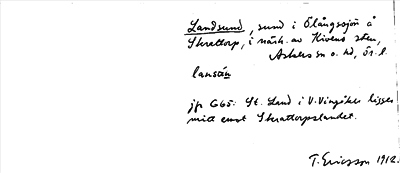 Landsund, sund i Ölångssjön å
Skrattorp, i närh. av Kivens sten,
Askers sn o. hd, Ör. l.
lansún
jfr G65: St. Land i V. Vingåker ligger
mitt emot Skrattorpslandet.
T. Ericsson 1912.